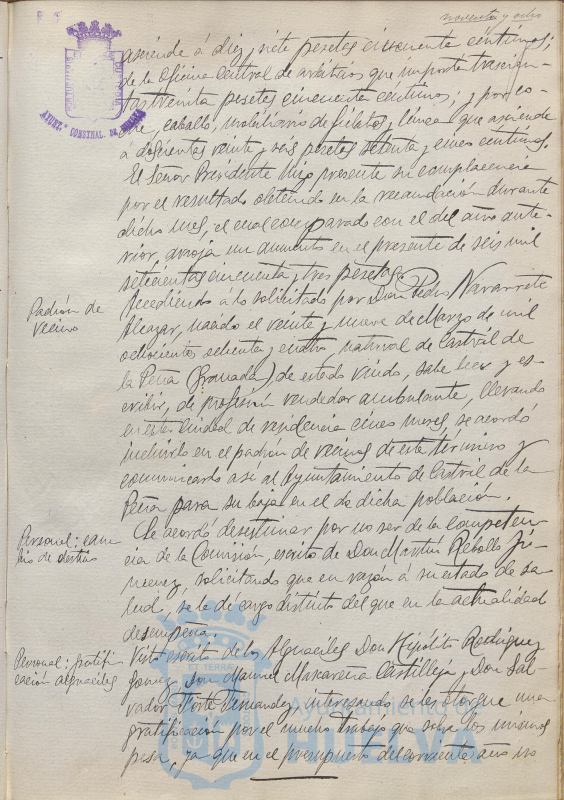 noventa y ocho
asciende á diez, siete pesetas cincuenta céntimos;
de la Oficina Central de arbitrios que importa trescien-
tas treinta pesetas cincuenta céntimos; y por co-
che, caballo, mobiliario de fielatos y línea que asciende
á doscientas veinte y seis pesetas setenta y cinco céntimos.
El Señor Presidente hizo presente su complacencia
por el resultado obtenido en la recaudación durante
dicho mes, el cual comparado con el del año ante-
rior, arroja un aumento en el presente de seis mil
setecientas cincuenta y tres pesetas.
Padrón de
vecinos
Accediendo á lo solicitado por Don Pedro Navarrete
Alcazar, nacido el veinte y nueve de Marzo de mil
ochocientos setenta y cuatro, natural de Castril de
la Peña (Granada), de estado viudo, sabe leer y es-
cribir, de profesión vendedor ambulante, llevando
en esta Ciudad de residencia cinco meses, se acordó
incluirlo en el padrón de vecinos de este término y
comunicarlo así al Ayuntamiento de Castril de la
Peña para su baja en el de dicha población.
Personal: cam-
bio de destino
Se acordó desestimar por no ser de la competen-
cia de la Comisión, escrito de Don Martín Rebollo Ji-
menez, solicitando que en razón á su estado de sa-
lud, se le dé cargo distinto del que en la actualidad
desempeña.
Personal: gratifi-
cación alguaciles
Visto escrito de los Alguaciles Don Hipólito Rodríguez
Gomez, Don Manuel Macareña Castilleja y Don Sal-
vador Forte Fernandez, interesando se les otorgue una
gratificación por el mucho trabajo que sobre los mismos
pesa, ya que en el presupuesto del corriente año no
AYUNT.º CONSTNAL. DE HUELVA
Ayuntamiento de
HUELVA